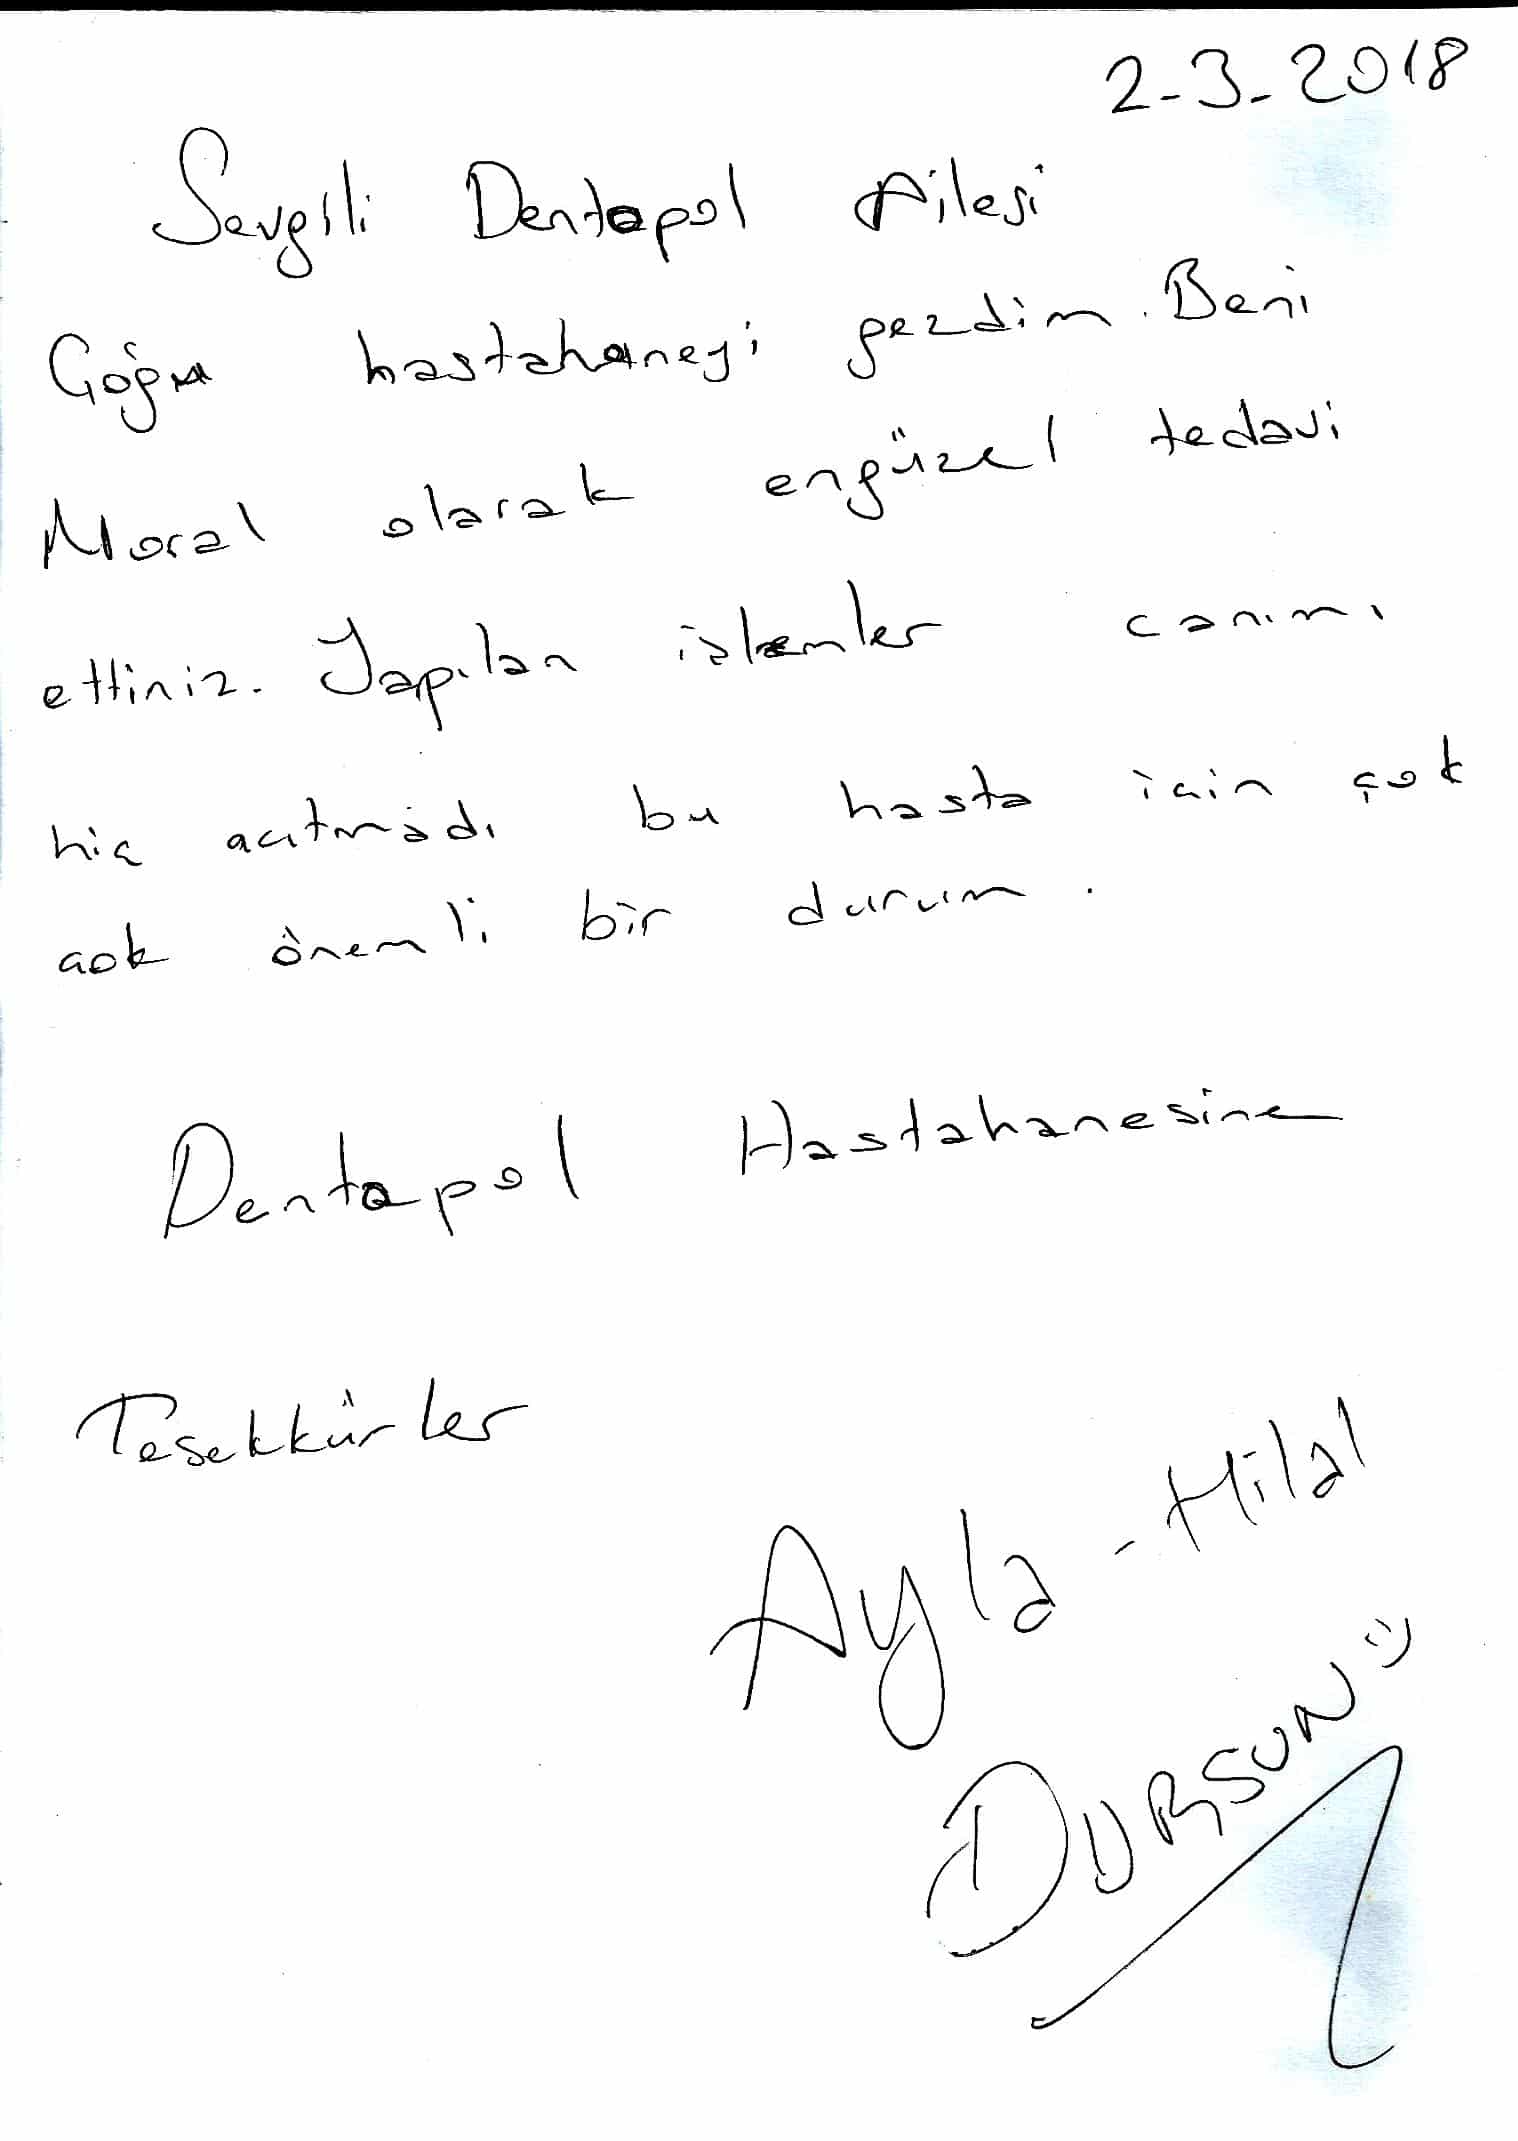 2-3-2018
Sevgili Dentapol Ailesi
hastahaneyi gezdim. Beni
Moral olarak engüzel tedavi
ettiniz. Yapılan işlemler canımı
hiç acıtmadı bu hasta için çok
çok önemli bir durum.
Dentapol Hastahanesine
Teşekkürler
Ayla-Hilal
DURSUN :)